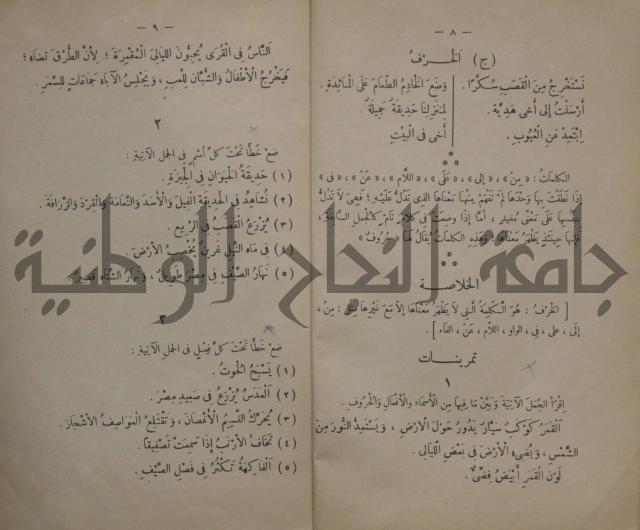 — ٨ —
(ج) الْحَرْفُ
نَسْتَخْرِجُ مِنَ الْقَصَبِ سُكَّرًا . وَضَعَ الْخَادِمُ الطَّعَامَ عَلَى الْمَائِدَةِ .
أَرْسَلْتُ إِلَى أَخِى هَدِيَّة . لِمَنْزِلِنَا حَدِيقَةٌ جَمِيلَةٌ .
اِبْتَعِدْ عَنِ الْعُيُوبِ . أَخِى فِى الْبَيْتِ
الكلماتُ : « مِنْ » ، « إلى » ، « عَلَى » ، « اللَّام » ، « عَنْ » ، « فى »
إذا نَطَقْتَ بِهَا وَحْدَهَا لَمْ تَفْهَمْ مِنْهَا مَعْنَاهَا الذِى تَدُلُّ عَلَيْهِ ؛ فَهِىَ لَا تَدُلُّ
بِنَفْسِهَا عَلَى مَعْنًى مُفِيدٍ ، أَمَّا إِذَا وُضِعَتْ فى كَلَامٍ تَامٍّ كَالْجُمَلِ السَّابِقَةِ ،
فَإِنَّهَا حِينَئِذٍ يَظْهَرُ مَعْنَاهَا ؛ وَهَذِهِ الكَلِمَاتُ يُقَالُ لَهَا « حُرُوفٌ »
الخلاصة
[ الْحَرْفُ : هُوَ الْكَلِمَةُ الَّتِى لَا يَظْهَرُ مَعْنَاهَا إلَّا مَعَ غَيْرِهَا مِثْلُ : مِنْ ،
إِلَى ، عَلَى ، فِى ، الواو ، اللَّام ، عَنْ ، الفَاء ] .
تمرينات
١
اِقْرَأ الْجُمَلَ الْآتِيَةَ وَبَيِّنْ مَا فِيهَا مِنَ الْأَسْمَاءِ وَالْأَفْعَالِ وَالْحُرُوفِ .
الْقَمَرُ كَوْكَبٌ سَيَّارٌ يَدُورُ حَوْلَ الْأَرْضِ ، وَيَسْتَمِدُّ النُّورَ مِنَ
الشَّمْسِ ، وَيُضِىءُ الْأَرْضَ فِى بَعْضِ اللَّيَالِى .
لَوْنُ الْقَمَرِ أَبْيَضُ فِضِّىٌّ .
— ٩ —
النَّاسُ فِى الْقُرَى يُحِبُّونَ اللَّيَالِىَ الْمُقْمِرَةَ ؛ لِأَنَّ الطُّرُقَ تُضَاءُ ؛
فَيَخْرُجُ الْأَطْفَالُ وَالشُّبَّانُ لِلَّعِبِ ، وَيَجْلِسُ الْآبَاءُ جَمَاعَاتٍ لِلسَّمَرِ .
٢
ضَعْ خَطًّا تَحْتَ كلِّ اسْمٍ فى الجمل الآتِيَةِ :
(١) حَدِيقَةُ الْحَيَوَانِ فِى الْجِيزَةِ .
(٢) نُشَاهِدُ فى الْحَدِيقَةِ الْفِيلَ وَالْأَسَدَ وَالنَّعَامَةَ وَالْقِرْدَ وَالزَّرَافَةَ .
(٣) يُزْرَعُ الْقَصَبُ فى الرَّبِيعِ .
(٤) فِى مَاءِ النِّيلِ غَرِينٌ يُخْصِبُ الْأَرْضَ .
(٥) نَهَارُ الصَّيْفِ فِى مِصْرَ طَوِيلٌ ، وَنَهَارُ الشِّتَاءِ قَصِيرٌ .
٣
ضَعْ خَطًّا تَحْتَ كلِّ فِعْلٍ فى الجمل الآتِيَةِ :
(١) يَسْبَحُ الْحُوتُ .
(٢) الْعَدَسُ يُزْرَعُ فِى صَعِيدِ مِصْرَ .
(٣) يُحَرِّكُ النَّسِيمُ الْأَغْصَانَ ، وَتَقْتَلِعُ الْعَوَاصِفُ الْأَشْجَارَ .
(٤) تَخَافُ الْأَرْنَبُ إِذَا سَمِعَتْ تَصْفِيقًا .
(٥) الْفَاكِهَةُ تَكْثُرُ فِى فَصْلِ الصَّيْفِ .
جامعة النجاح الوطنية